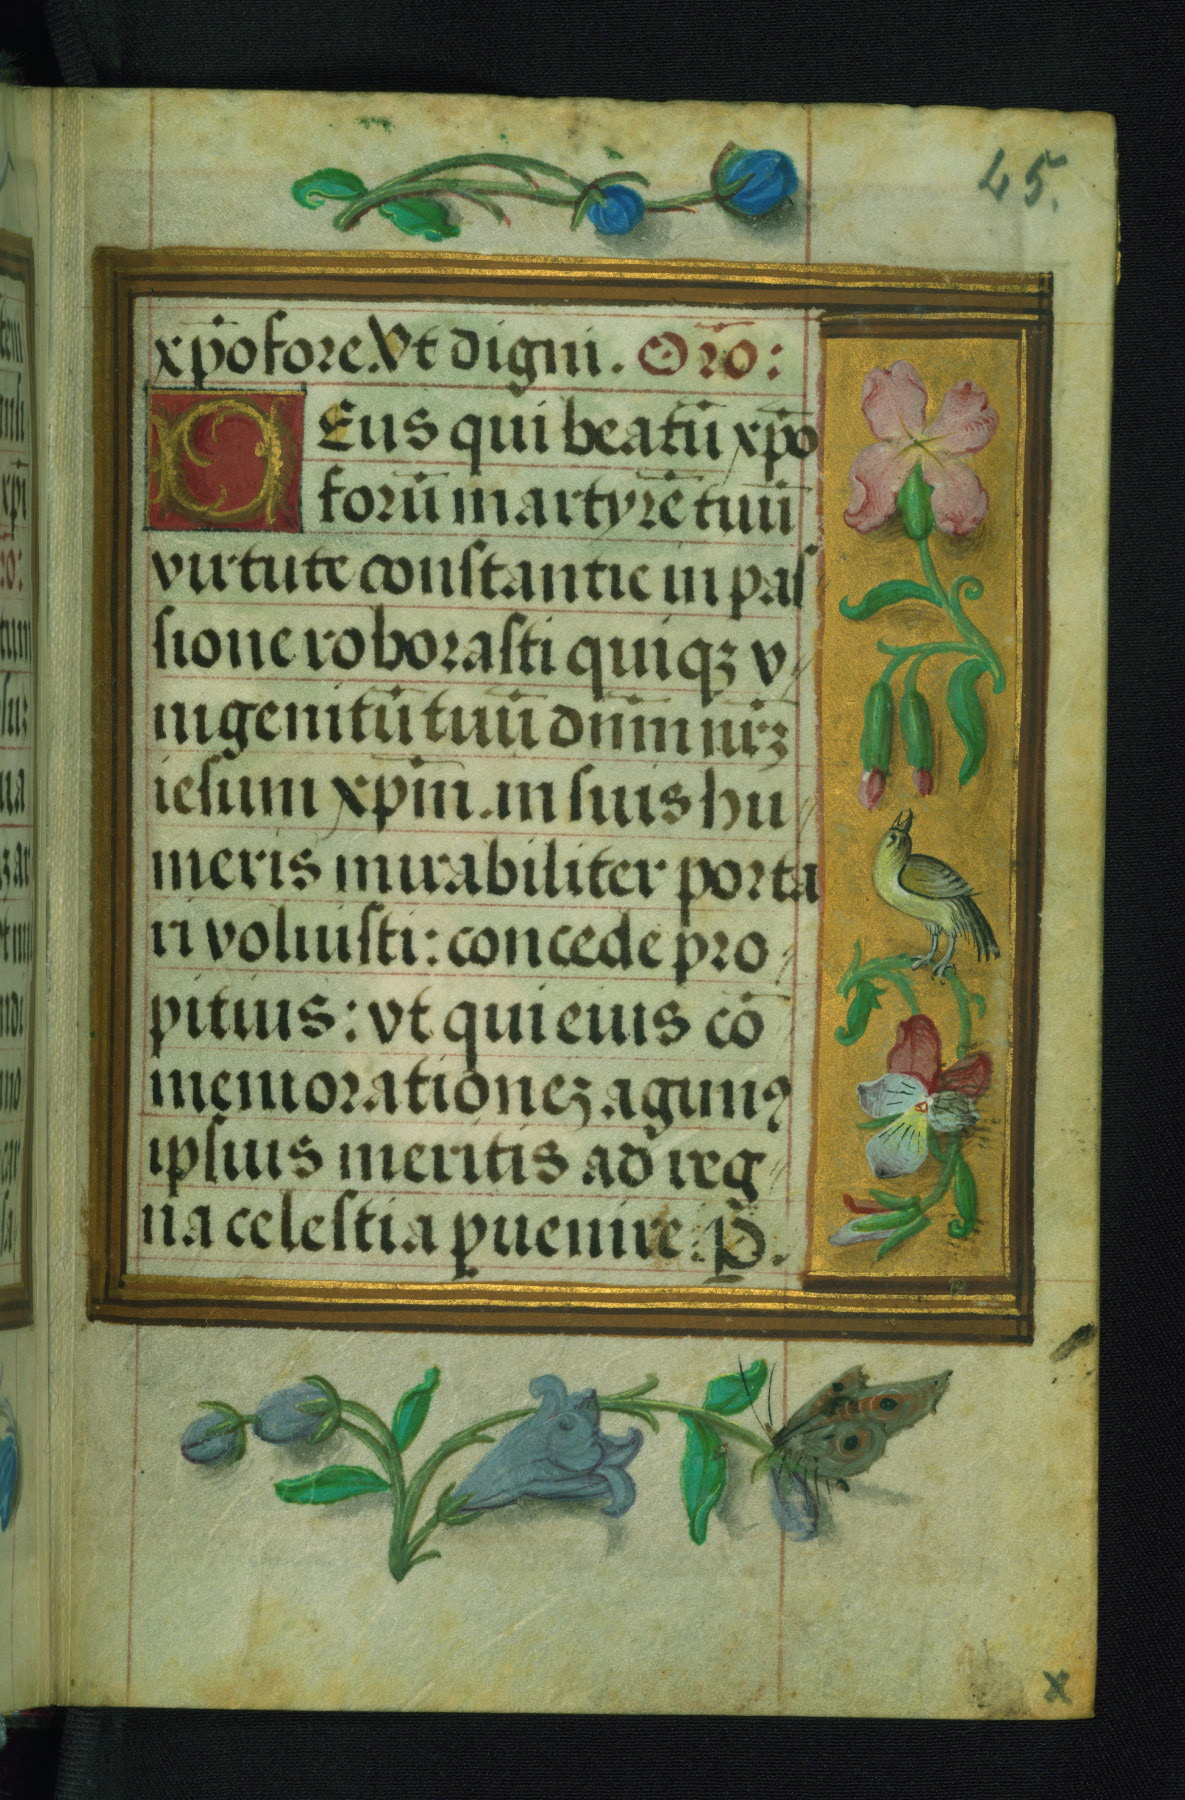 45.
xp̄ofore. Vt digni. Or̄o:
DEus qui beatū xp̄o
forū martyrē tuū
virtute constantie in pas
sione roborasti quiqꝫ v
nigenitū tuū dn̄m nr̄ꝫ
iesum xp̄m. in suis hu
meris mirabiliter porta
ri voluisti: concede pro
pitius: vt qui eius cō
memorationeꝫ agimꝰ
ipsius meritis ad reg
na celestia ꝑuenire. P̄.
x